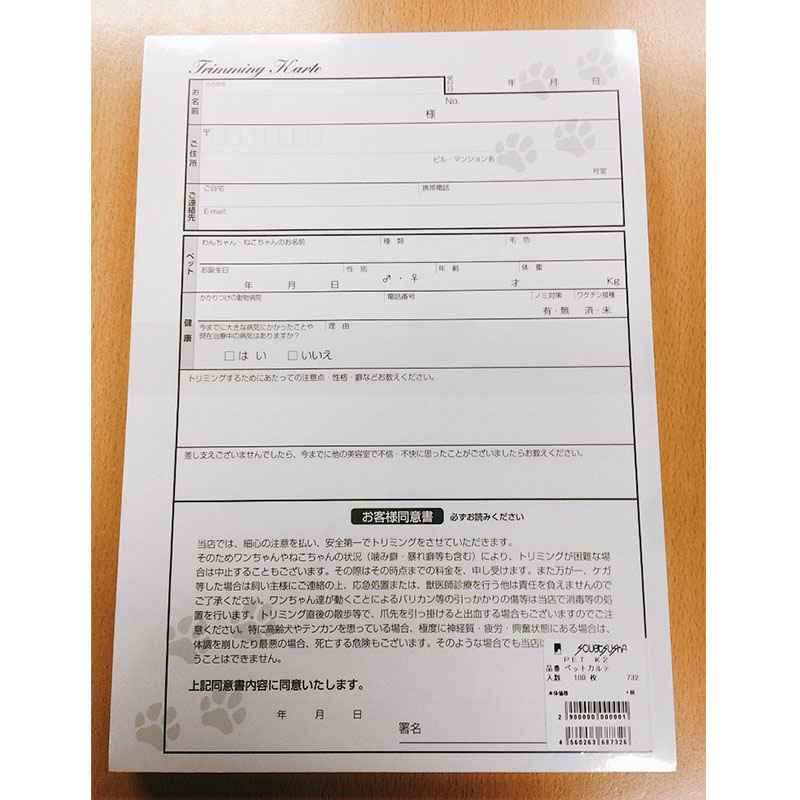 Trimming Karte
ご来店日 年 月 日
ふりがな
No.
お名前 様
ご住所 〒
ビル・マンション名
号室
ご連絡先 ご自宅 携帯電話
E-mail:
ペット わんちゃん・ねこちゃんのお名前 種類 毛色
お誕生日 性別 年齢 体重
年 月 日 ♂・♀ 才 Kg
健康 かかりつけの動物病院 電話番号 ノミ対策 ワクチン接種
有・無 済・未
今までに大きな病気にかかったことや 理由
現在治療中の病気はありますか?
□はい □いいえ
トリミングするためにあたっての注意点・性格・癖などお教えください。
差し支えございませんでしたら、今までに他の美容室で不信・不快に思ったことがございましたらお教えください。
お客様同意書 必ずお読みください
当店では、細心の注意を払い、安全第一でトリミングをさせていただきます。
そのためワンちゃんやねこちゃんの状況(噛み癖・暴れ癖等も含む)により、トリミングが困難な場
合は中止することもございます。その際はその時点までの料金を、申し受けます。また万が一、ケガ
等した場合は飼い主様にご連絡の上、応急処置または、獣医師診療を行う他は責任を負えませんので
ご了承ください。ワンちゃん達が動くことによるバリカン等の引っかかりの傷等は当店で消毒等の処
置を行います。トリミング直後の散歩等で、爪先を引っ掛けると出血する場合もございますのでご注
意ください。特に高齢犬やテンカンを患っている場合、極度に神経質・疲労・興奮状態にある場合は、
体調を崩したり最悪の場合、死亡する危険もございます。そのような場合でも当店に
うことはできません。
上記同意書内容に同意いたします。
年 月 日
署名
SOUBISUSHA
PET K2
品番 ペットカルテ
入数 100 枚 732
本体価格 +税
2 900000 000001
4 560263 687326